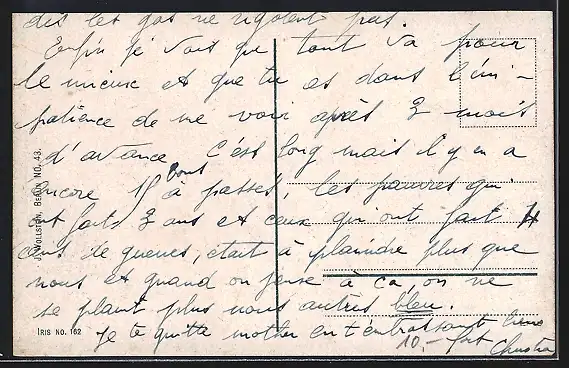 dis les gos ne rigolent pas.
Enfin je vois que tout va pour
le mieux et que tu es dans l'im-
patience de me voir après 2 mois
d'avance. C'est long mais il y en a
encore 18 à passer, les pauvres qui
ont faits 3 ans et ceux qui ont fait 4
ans de guerres, était à plaindre plus que
nous et quand on pense à ça, on ne
se plaint plus nous autres bleu.
Je te quitte mother en t'embrassant bien
fort
10.-
J. WOLLSTEIN, BERLIN NO. 43.
IRIS NO. 162